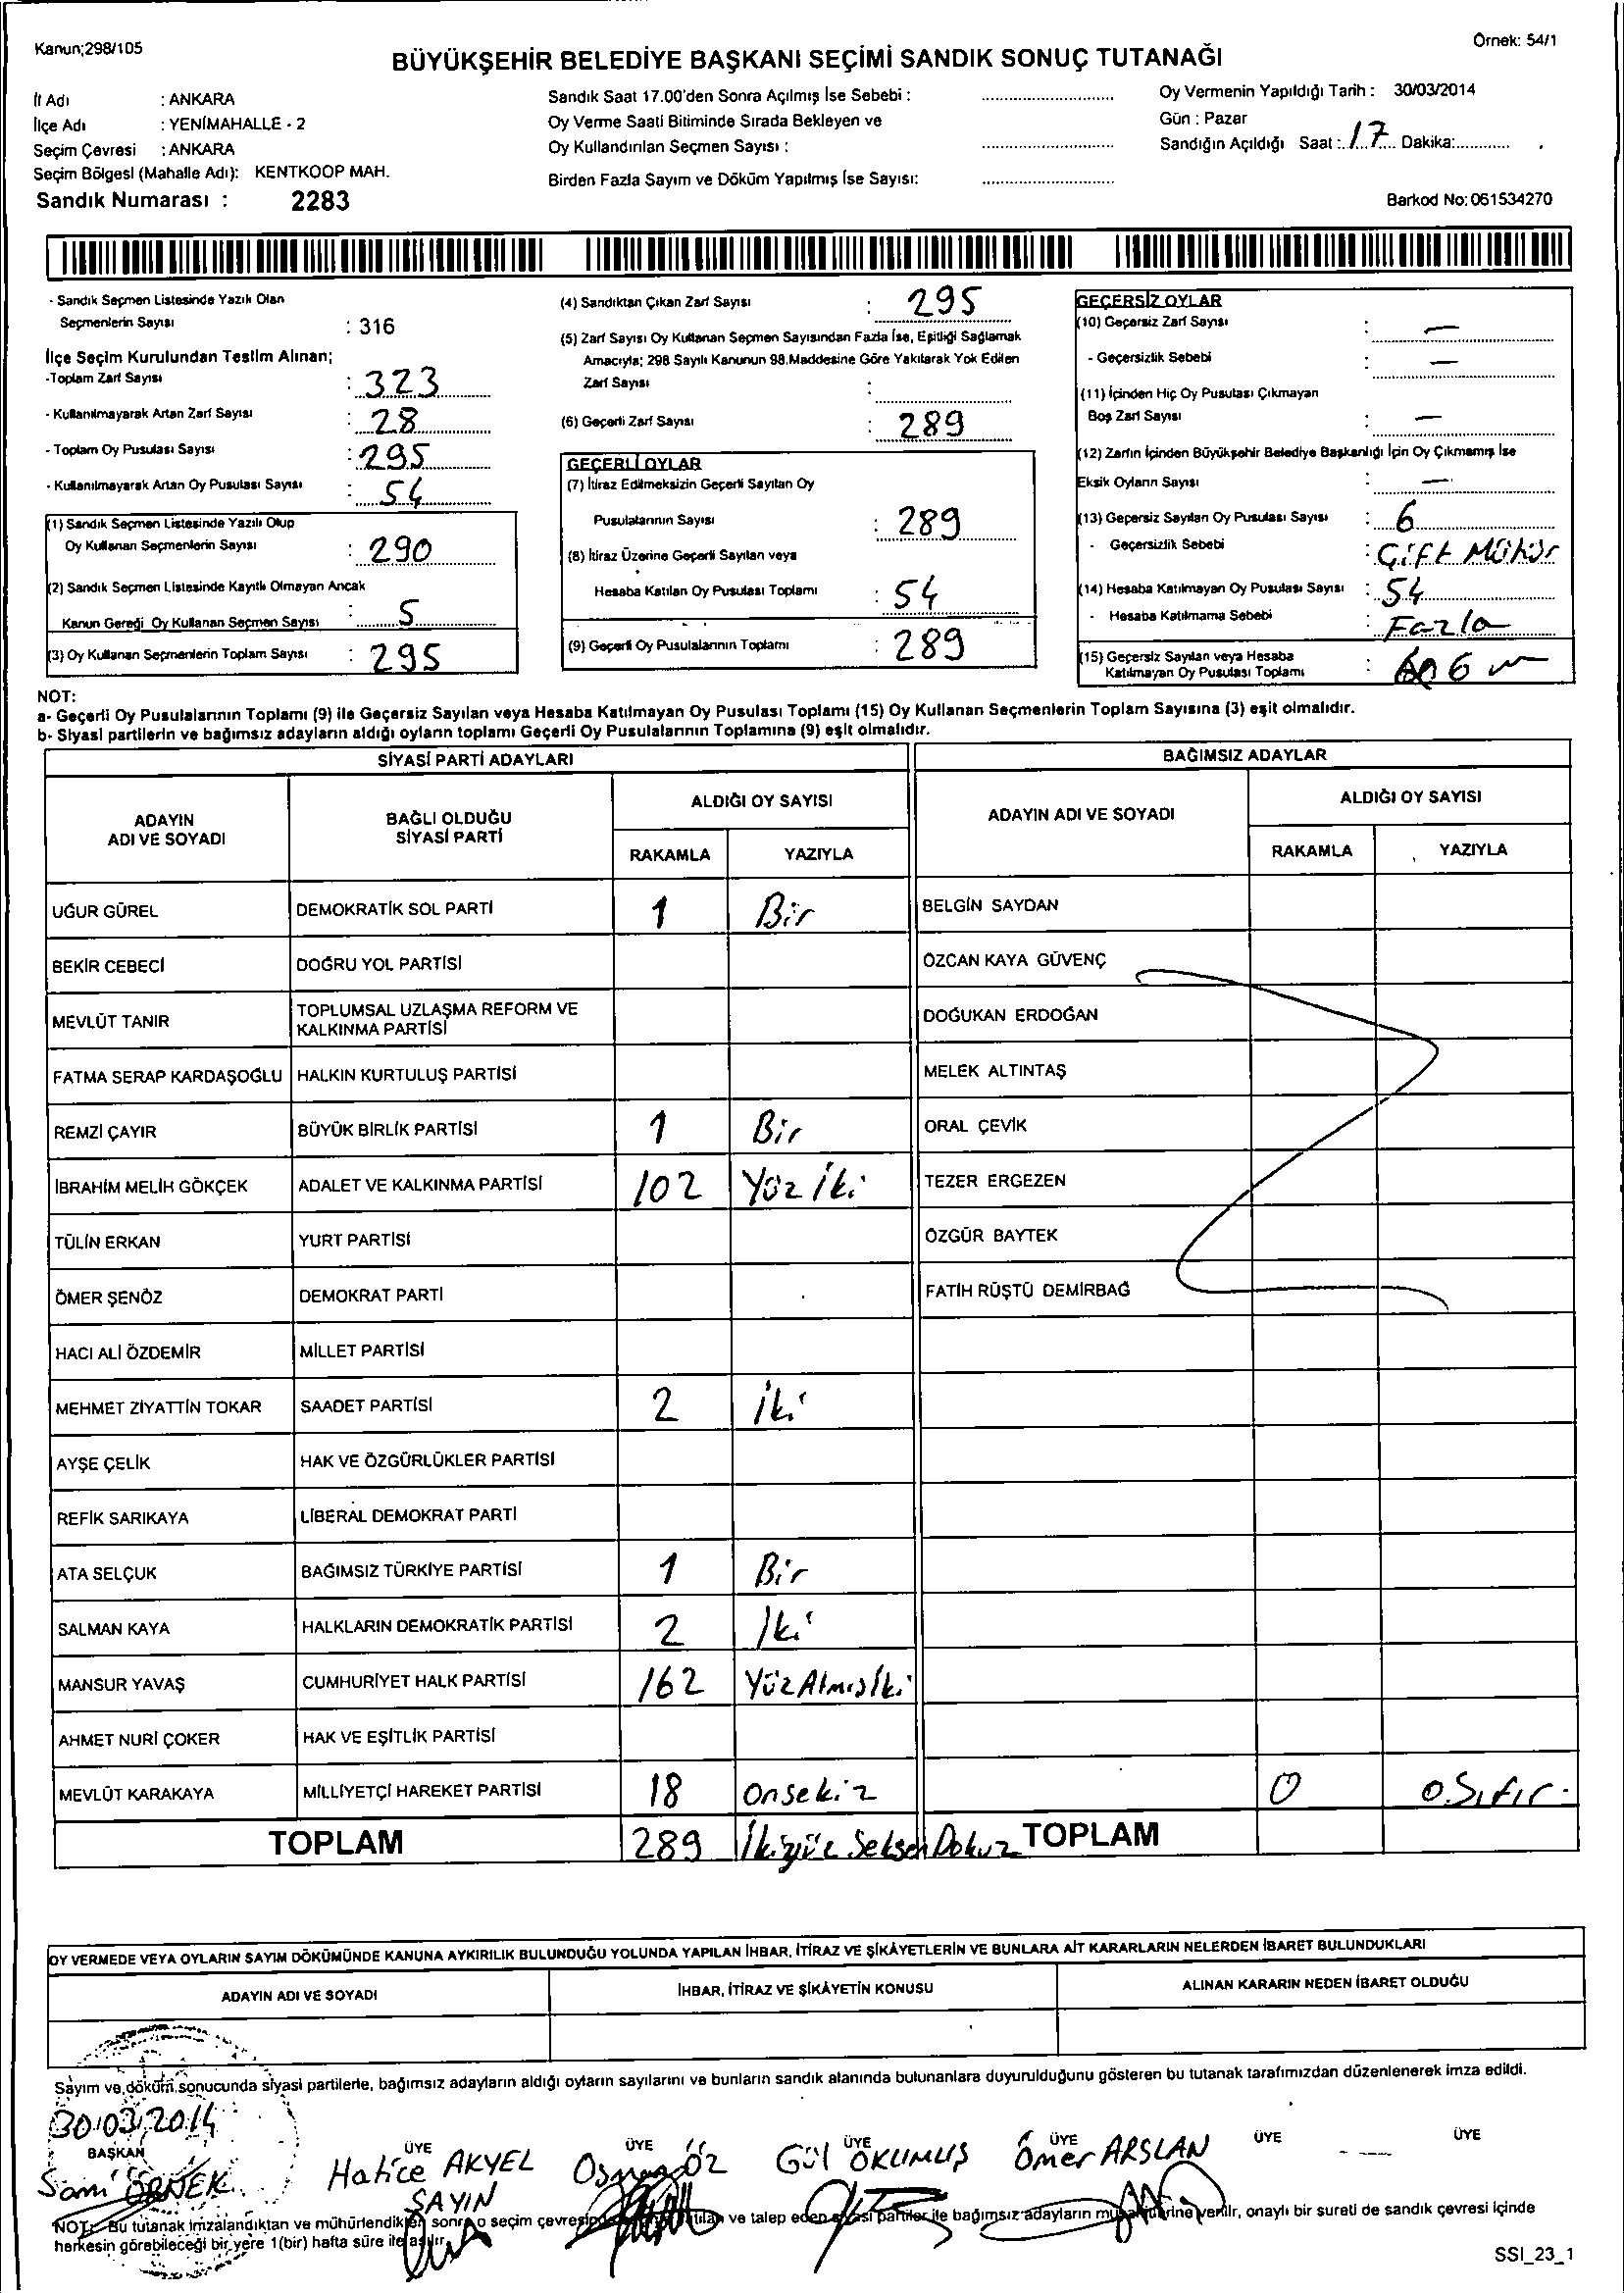 Kanun;298/105
Örnek: 54/1
BÜYÜKŞEHİR BELEDİYE BAŞKANI SEÇİMİ SANDIK SONUÇ TUTANAĞI
İl Adı : ANKARA
İlçe Adı : YENİMAHALLE - 2
Seçim Çevresi : ANKARA
Seçim Bölgesi (Mahalle Adı): KENTKOOP MAH.
Sandık Numarası : 2283
Sandık Saat 17.00'den Sonra Açılmış İse Sebebi :
Oy Verme Saati Bitiminde Sırada Bekleyen ve
Oy Kullandırılan Seçmen Sayısı :
Birden Fazla Sayım ve Döküm Yapılmış İse Sayısı:
Oy Vermenin Yapıldığı Tarih : 30/03/2014
Gün : Pazar
Sandığın Açıldığı Saat : 17 Dakika:
Barkod No: 061534270
- Sandık Seçmen Listesinde Yazılı Olan
Seçmenlerin Sayısı : 316
İlçe Seçim Kurulundan Teslim Alınan;
-Toplam Zarf Sayısı : 323
- Kullanılmayarak Artan Zarf Sayısı : 28
- Toplam Oy Pusulası Sayısı : 295
- Kullanılmayarak Artan Oy Pusulası Sayısı : 54
(1) Sandık Seçmen Listesinde Yazılı Olup
Oy Kullanan Seçmenlerin Sayısı : 290
(2) Sandık Seçmen Listesinde Kayıtlı Olmayan Ancak
Kanun Gereği Oy Kullanan Seçmen Sayısı : 5
(3) Oy Kullanan Seçmenlerin Toplam Sayısı : 295
(4) Sandıktan Çıkan Zarf Sayısı : 295
(5) Zarf Sayısı Oy Kullanan Seçmen Sayısından Fazla İse, Eşitliği Sağlamak
Amacıyla; 298 Sayılı Kanunun 98.Maddesine Göre Yakılarak Yok Edilen
Zarf Sayısı :
(6) Geçerli Zarf Sayısı : 289
GEÇERLİ OYLAR
(7) İtiraz Edilmeksizin Geçerli Sayılan Oy
Pusulalarının Sayısı : 289
(8) İtiraz Üzerine Geçerli Sayılan veya
Hesaba Katılan Oy Pusulası Toplamı : 54
(9) Geçerli Oy Pusulalarının Toplamı : 289
GEÇERSİZ OYLAR
(10) Geçersiz Zarf Sayısı : —
- Geçersizlik Sebebi : —
(11) İçinden Hiç Oy Pusulası Çıkmayan
Boş Zarf Sayısı : —
(12) Zarfın İçinden Büyükşehir Belediye Başkanlığı İçin Oy Çıkmamış İse
Eksik Oyların Sayısı : —
(13) Geçersiz Sayılan Oy Pusulası Sayısı : 6
- Geçersizlik Sebebi : Çift Mühür
(14) Hesaba Katılmayan Oy Pusulası Sayısı : 54
- Hesaba Katılmama Sebebi : Fazla
(15) Geçersiz Sayılan veya Hesaba
Katılmayan Oy Pusulası Toplamı : 6
NOT:
a- Geçerli Oy Pusulalarının Toplamı (9) ile Geçersiz Sayılan veya Hesaba Katılmayan Oy Pusulası Toplamı (15) Oy Kullanan Seçmenlerin Toplam Sayısına (3) eşit olmalıdır.
b- Siyasi partilerin ve bağımsız adayların aldığı oyların toplamı Geçerli Oy Pusulalarının Toplamına (9) eşit olmalıdır.
SİYASİ PARTİ ADAYLARI
ADAYIN ADI VE SOYADI
BAĞLI OLDUĞU SİYASİ PARTİ
ALDIĞI OY SAYISI
RAKAMLA YAZIYLA
UĞUR GÜREL DEMOKRATİK SOL PARTİ 1 Bir
BEKİR CEBECİ DOĞRU YOL PARTİSİ
MEVLÜT TANIR TOPLUMSAL UZLAŞMA REFORM VE
KALKINMA PARTİSİ
FATMA SERAP KARDAŞOĞLU HALKIN KURTULUŞ PARTİSİ
REMZİ ÇAYIR BÜYÜK BİRLİK PARTİSİ 1 Bir
İBRAHİM MELİH GÖKÇEK ADALET VE KALKINMA PARTİSİ 102 Yüz İki
TÜLİN ERKAN YURT PARTİSİ
ÖMER ŞENÖZ DEMOKRAT PARTİ
HACI ALİ ÖZDEMİR MİLLET PARTİSİ
MEHMET ZİYATTİN TOKAR SAADET PARTİSİ 2 İki
AYŞE ÇELİK HAK VE ÖZGÜRLÜKLER PARTİSİ
REFİK SARIKAYA LİBERAL DEMOKRAT PARTİ
ATA SELÇUK BAĞIMSIZ TÜRKİYE PARTİSİ 1 Bir
SALMAN KAYA HALKLARIN DEMOKRATİK PARTİSİ 2 İki
MANSUR YAVAŞ CUMHURİYET HALK PARTİSİ 162 YüzAtmışİki
AHMET NURİ ÇOKER HAK VE EŞİTLİK PARTİSİ
MEVLÜT KARAKAYA MİLLİYETÇİ HAREKET PARTİSİ 18 Onsekiz
TOPLAM 289 İkiyüz Seksen Dokuz
BAĞIMSIZ ADAYLAR
ADAYIN ADI VE SOYADI
ALDIĞI OY SAYISI
RAKAMLA YAZIYLA
BELGİN SAYDAN
ÖZCAN KAYA GÜVENÇ
DOĞUKAN ERDOĞAN
MELEK ALTINTAŞ
ORAL ÇEVİK
TEZER ERGEZEN
ÖZGÜR BAYTEK
FATİH RÜŞTÜ DEMİRBAĞ
0 0.Sıfır.
TOPLAM
OY VERMEDE VEYA OYLARIN SAYIM DÖKÜMÜNDE KANUNA AYKIRILIK BULUNDUĞU YOLUNDA YAPILAN İHBAR, İTİRAZ VE ŞİKÂYETLERİN VE BUNLARA AİT KARARLARIN NELERDEN İBARET BULUNDUKLARI
ADAYIN ADI VE SOYADI
İHBAR, İTİRAZ VE ŞİKÂYETİN KONUSU
ALINAN KARARIN NEDEN İBARET OLDUĞU
Sayım ve döküm sonucunda siyasi partilerle, bağımsız adayların aldığı oyların sayılarını ve bunların sandık alanında bulunanlara duyurulduğunu gösteren bu tutanak tarafımızdan düzenlenerek imza edildi.
30.03.2014
BAŞKAN ÜYE ÜYE ÜYE ÜYE ÜYE ÜYE
Sami ÖRNEK Hatice AKYEL SAYIN Osman ÖZ Gül OKUMUŞ Ömer ARSLAN
NOT: Bu tutanak imzalandıktan ve mühürlendikten sonra o seçim çevresinde katılan ve talep eden siyasi partiler ile bağımsız adayların müşahitlerine verilir, onaylı bir sureti de sandık çevresi içinde
herkesin görebileceği bir yere 1(bir) hafta süre ile asılır.
SSI_23_1